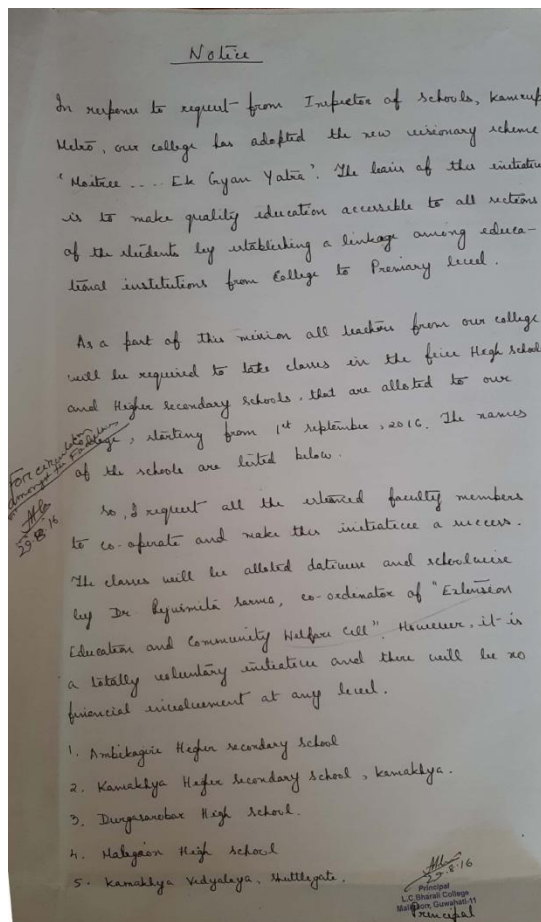 Notice
In response to request from Inspector of schools, Kamrup
Metro, our college has adopted the new visionary scheme
"Maitree .... Ek Gyan Yatra". The basis of this initiative
is to make quality education accessible to all sections
of the students by establishing a linkage among educa-
tional institutions from College to Primary level.
As a part of this mission all teachers from our college
will be required to take classes in the five High school
and Higher secondary schools, that are alloted to our
college, starting from 1st september, 2016. The names
of the schools are listed below.
For circulation
amongst the
29.8.16
So, I request all the esteemed faculty members
to co-operate and make this initiative a success.
The classes will be alloted datewise and schoolwise
by Dr. Sarma, co-ordinator of "Extension
Education and Community Welfare Cell". However, it is
a totally voluntary initiative and there will be no
financial involvement at any level.
1. Ambikagiri Higher secondary school
2. Kamakhya Higher secondary school, kamakhya.
3. Durgasarobar High school.
4. Maligaon High school
5. Kamakhya Vidyalaya, shuttlegate.
29.8.16
Principal
L.C.Bharali College
Maligaon, Guwahati-11
Principal